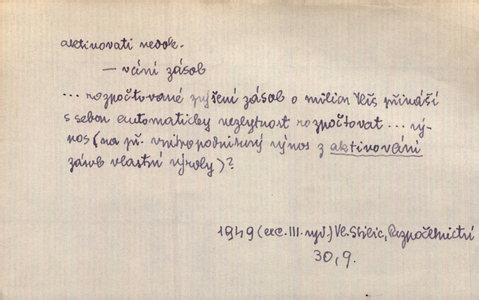 aktivovati nedok.
— vání zásob
... rozpočtované zvýšení zásob o milion Kčs přináší
s sebou automaticky nezbytnost rozpočtovat ... vý-
nos (na př. vnitropodnikový výnos z aktivování
zásob vlastní výroby)?
1949 (exc. III. vyd.) Vl. Stibic, Rozpočetnictví
30, 9.